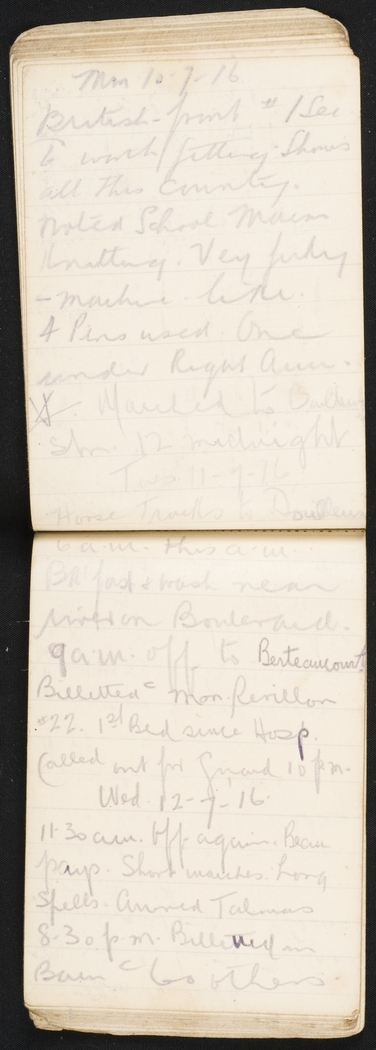 Mon 10-7-16
British-front #1 Sec
to watch fitting. Shows
all this Country.
Noted School Maam
Knitting. Very jerky
- machine like.
4 Pins used. One
under Right Arm.
Marched to
Stn. 12 midnight
Tues 11-7-16
Horse Trucks to Doullens
6 a.m. this a.m.
Bk'fast & wash near
river on Boulevard.
9 a.m. off to Berteaucourt
Billetted c Mon. Revillon
#22. 1st Bed since Hosp.
Called out for Guard 10 p.m.
Wed. 12-7-16
11-30 a.m. Off again. Beau
pays. Short marches. Long
Spells. Arrived Talmas
8-30 p.m. Billetted in
Barn c 60 others.